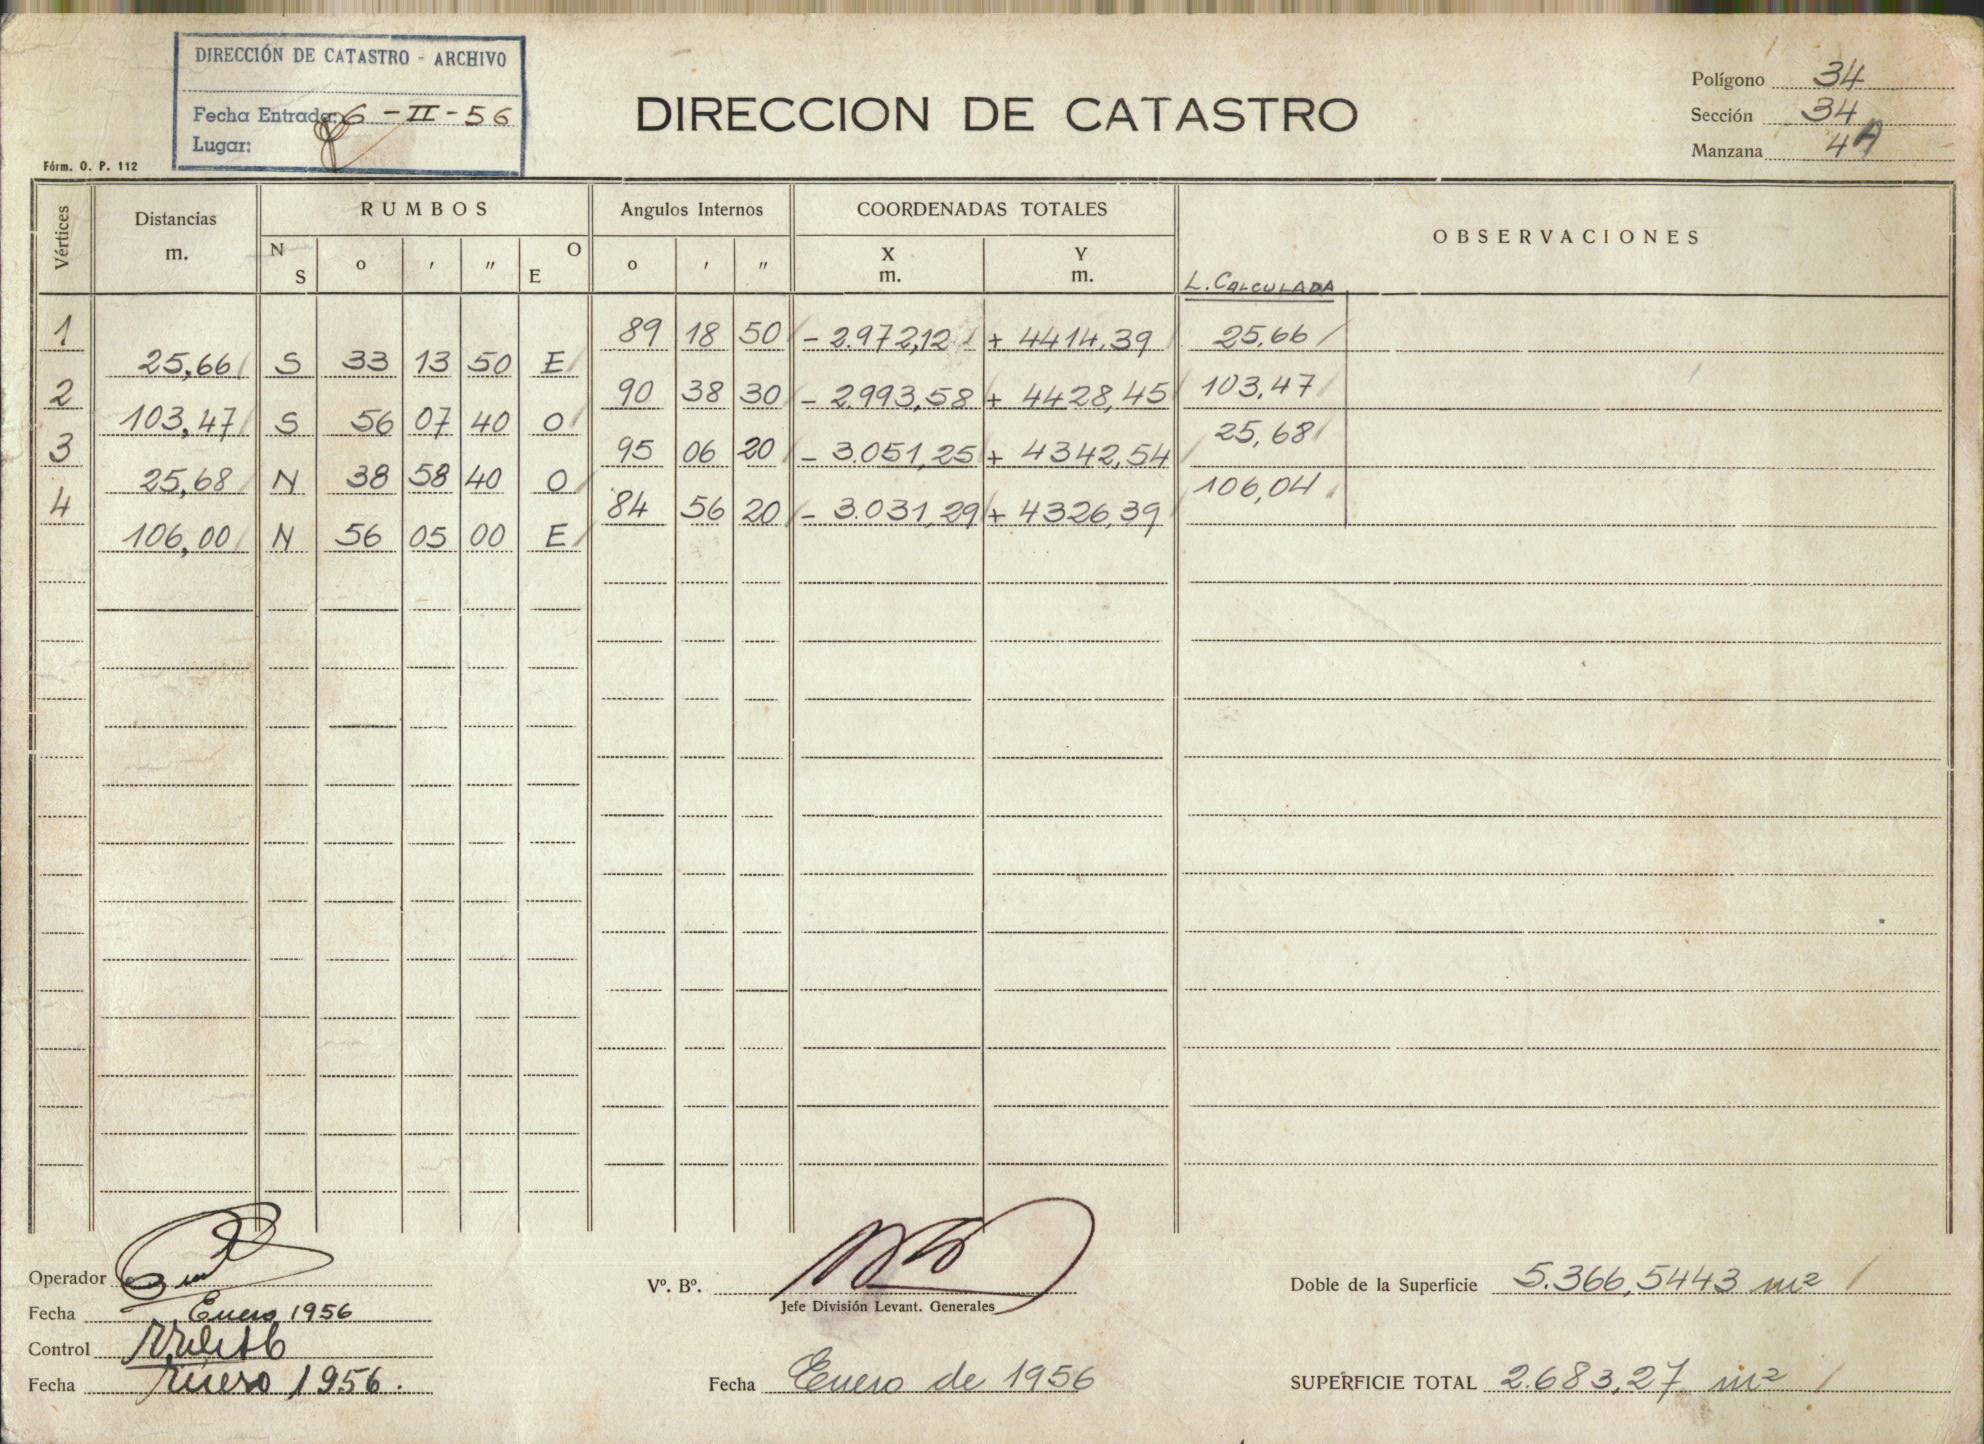 DIRECCIÓN DE CATASTRO - ARCHIVO
Fecha Entrada: 6 - II - 56
Lugar:
Fórm. O. P. 112
DIRECCION DE CATASTRO
Polígono 34
Sección 34
Manzana 4A
Vértices Distancias m. RUMBOS Angulos Internos COORDENADAS TOTALES OBSERVACIONES
N S ° ' " E O ° ' " X m. Y m. L. CALCULADA
1 89 18 50 - 2.972,12 + 4414,39 25,66
25,66 S 33 13 50 E
2 90 38 30 - 2.993,58 + 4428,45 103,47
103,47 S 56 07 40 O
3 95 06 20 - 3.051,25 + 4342,54 25,68
25,68 N 38 58 40 O
4 84 56 20 - 3.031,29 + 4326,39 106,04
106,00 N 56 05 00 E
Operador
Fecha Enero 1956
Control
Fecha Enero 1956.
Vº. Bº.
Jefe División Levant. Generales
Fecha Enero de 1956
Doble de la Superficie 5.366,5443 m²
SUPERFICIE TOTAL 2.683,27 m²